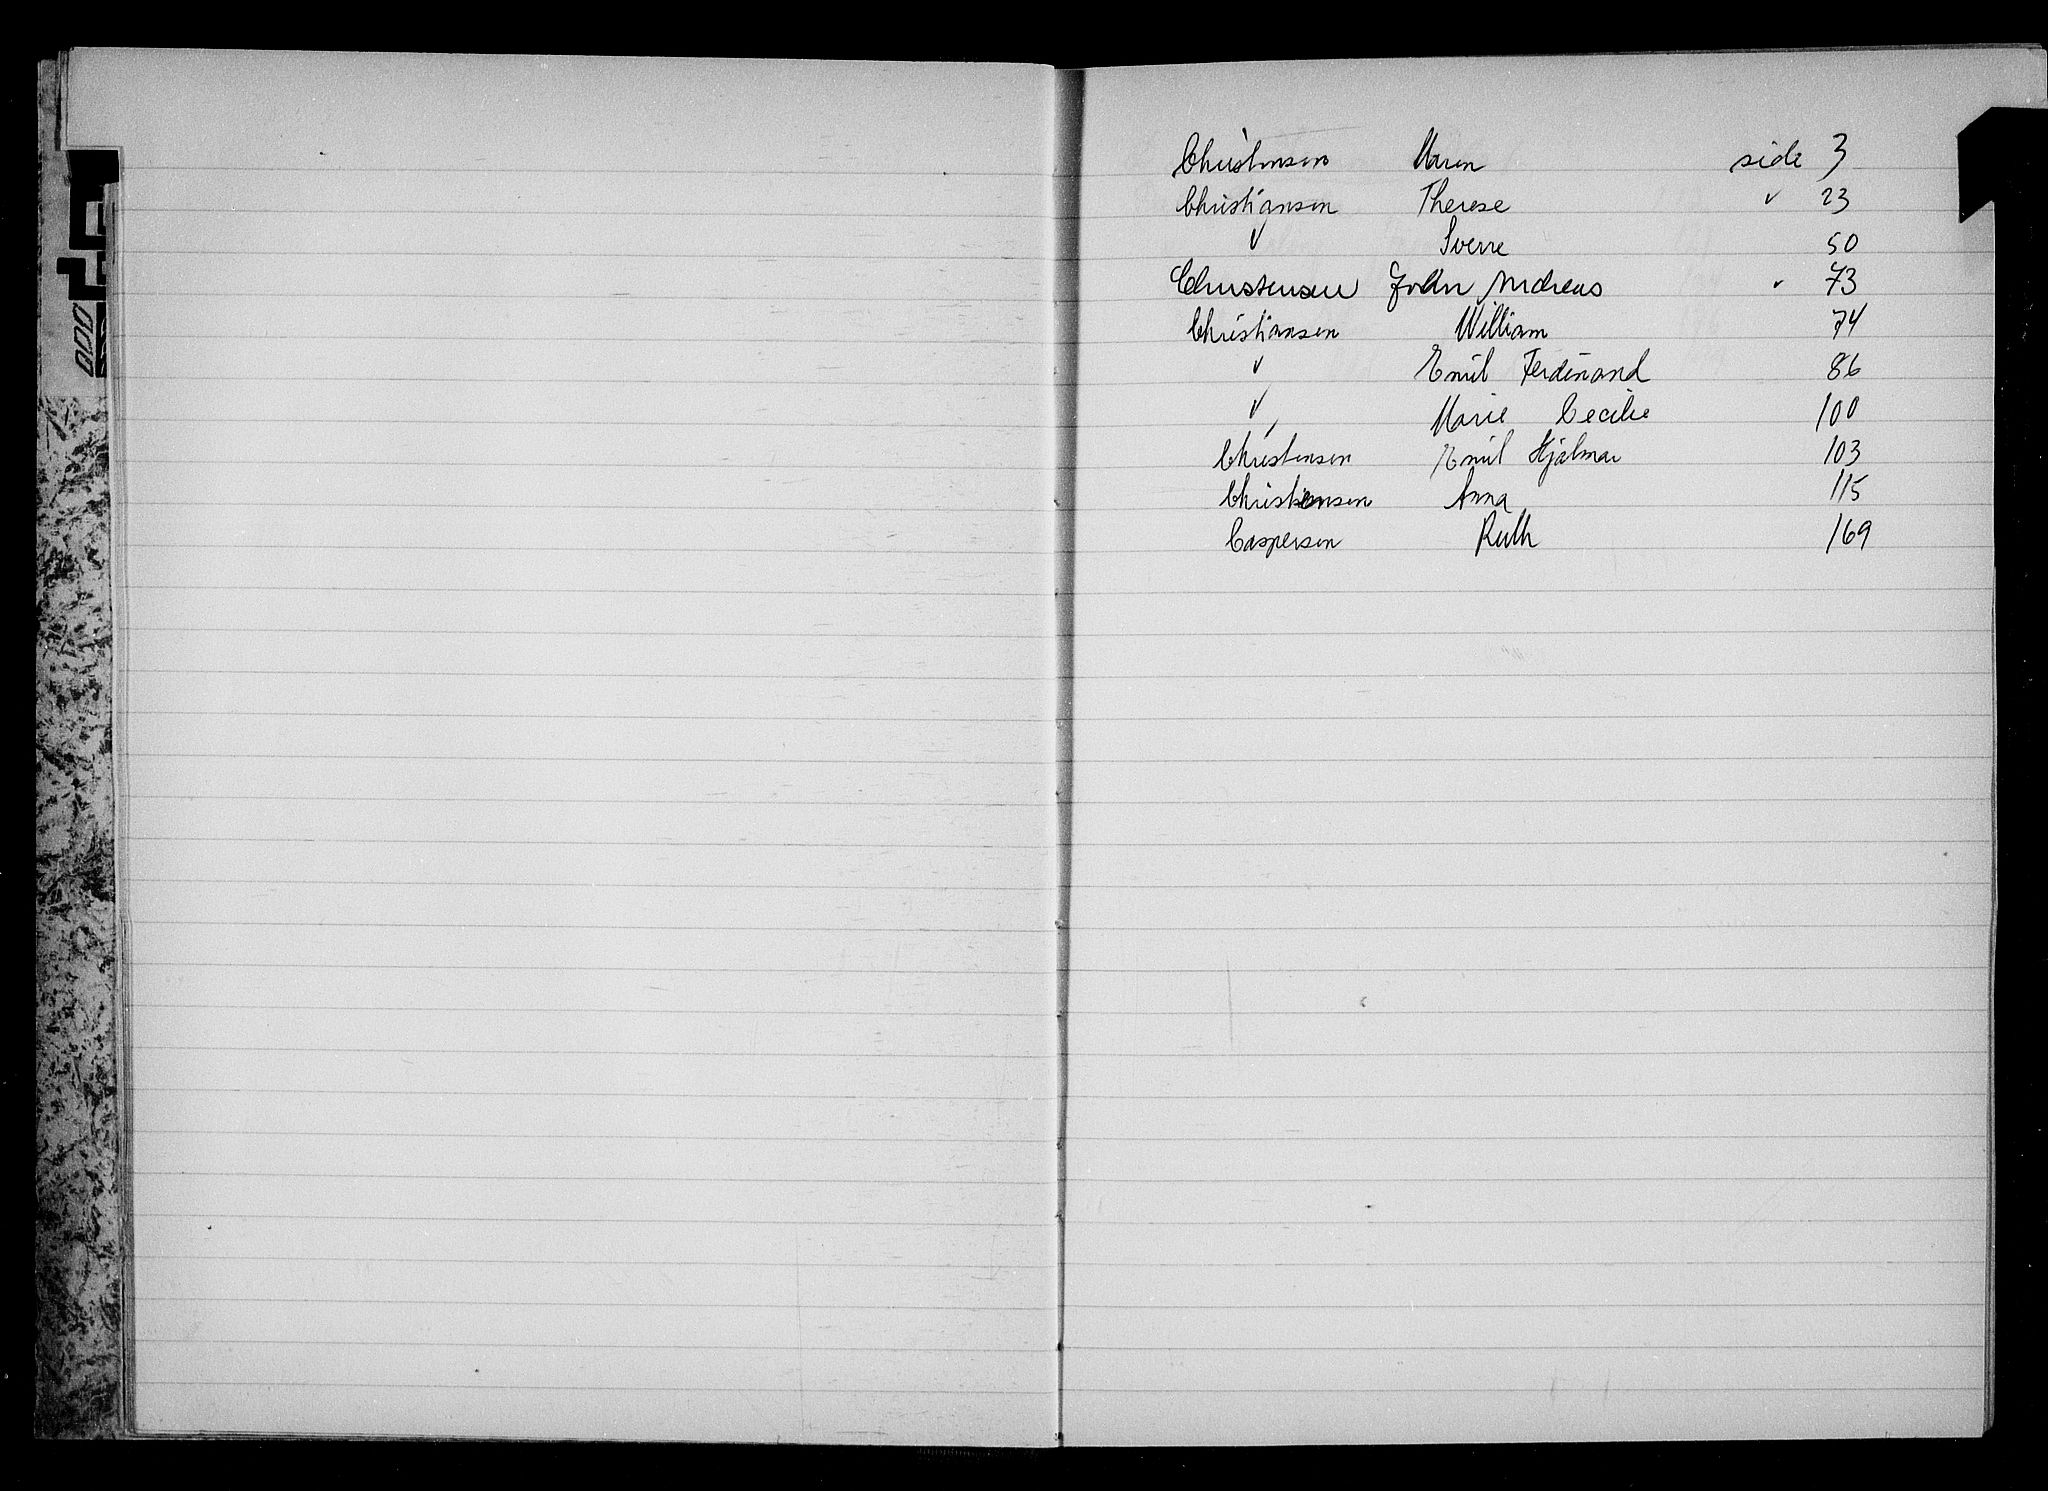 Christensen Maren side 3
Christiansen Therese v 23
v Sverre 50
Christensen John Andreas v 73
Christiansen William 74
v Emil Ferdinand 86
v Marie Cecilie 100
Christensen Emil Hjalmar 103
Christiansen Anna 115
Caspersen Ruth 169